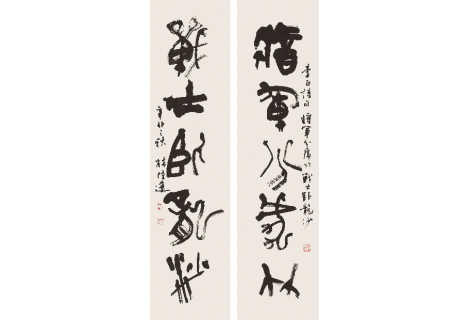 李白詩句將軍分虎竹戰士卧龍沙
將軍分虎竹
戰士卧龍沙
辛卯之秋